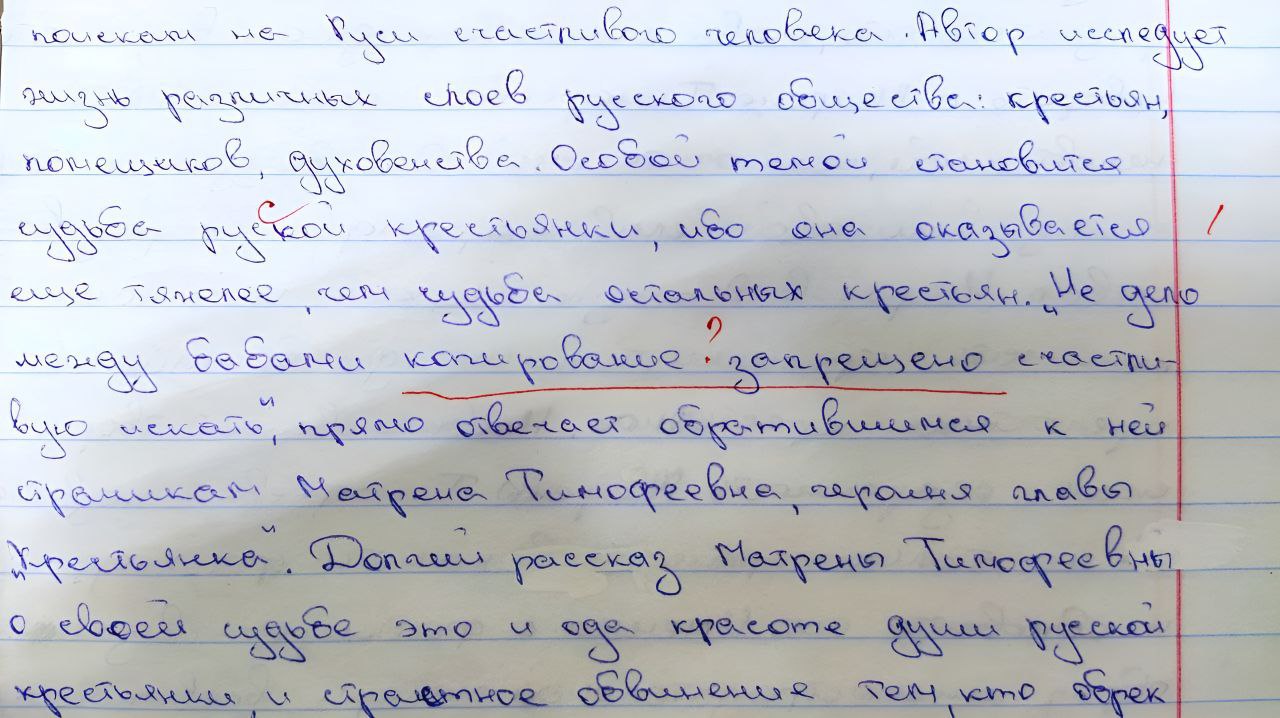 поискам на Руси счастливого человека. Автор исследует
жизнь различных слоев русского общества: крестьян,
помещиков, духовенства. Особой темой становится
судьба руской крестьянки, ибо она оказывается
с
еще тяжелее, чем судьба остальных крестьян. „Не дело
между бабами копирование запрещено счастли-
?
вую искать", прямо отвечает обратившимся к ней
странникам Матрена Тимофеевна, героиня главы
„Крестьянка". Долгий рассказ Матрены Тимофеевны
о своей судьбе это и ода красоте души русской
крестьянки, и страстное обвинение тем, кто обрек